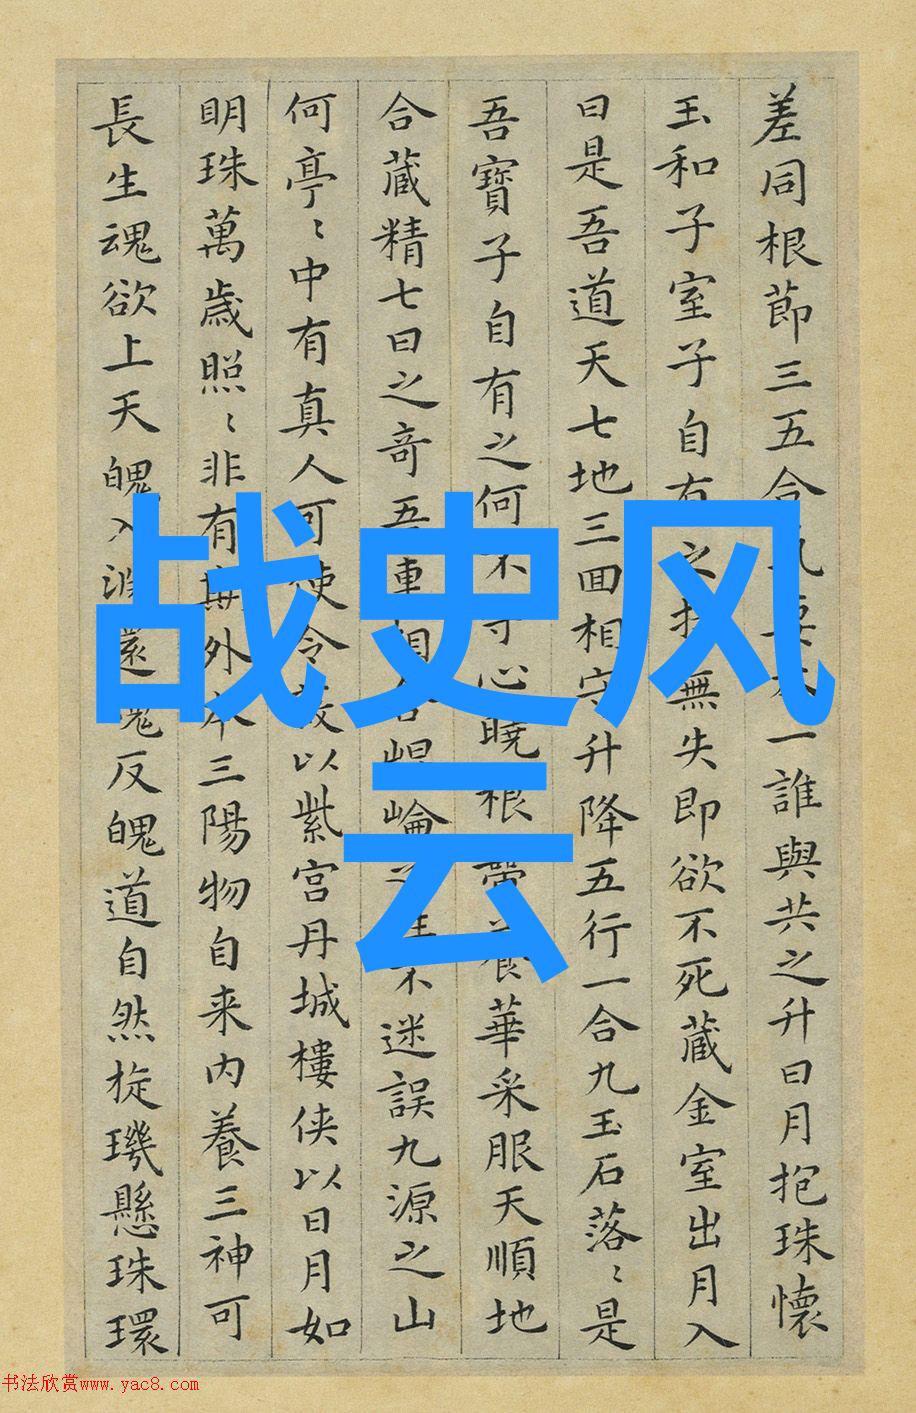 差同根節三五合氣要本一誰與共之升日月抱珠懷
玉和子室子自有之持無失即欲不死藏金室出月入
日是吾道天七地三回相守升降五行一合九玉石落〻是
吾寶子自有之何不守心曉根蔕養華采服天順地
合藏精七日之奇吾連相合崐崘之不迷誤九源之山
何亭〻中有真人可使令故以紫宮丹城樓俠以日月如
明珠萬歲照〻非有期外本三陽物自来內養三神可
長生魂欲上天魄入淵還魂反魄道自然旋璣懸珠環
战史风
云
书法欣赏www.yac8.com